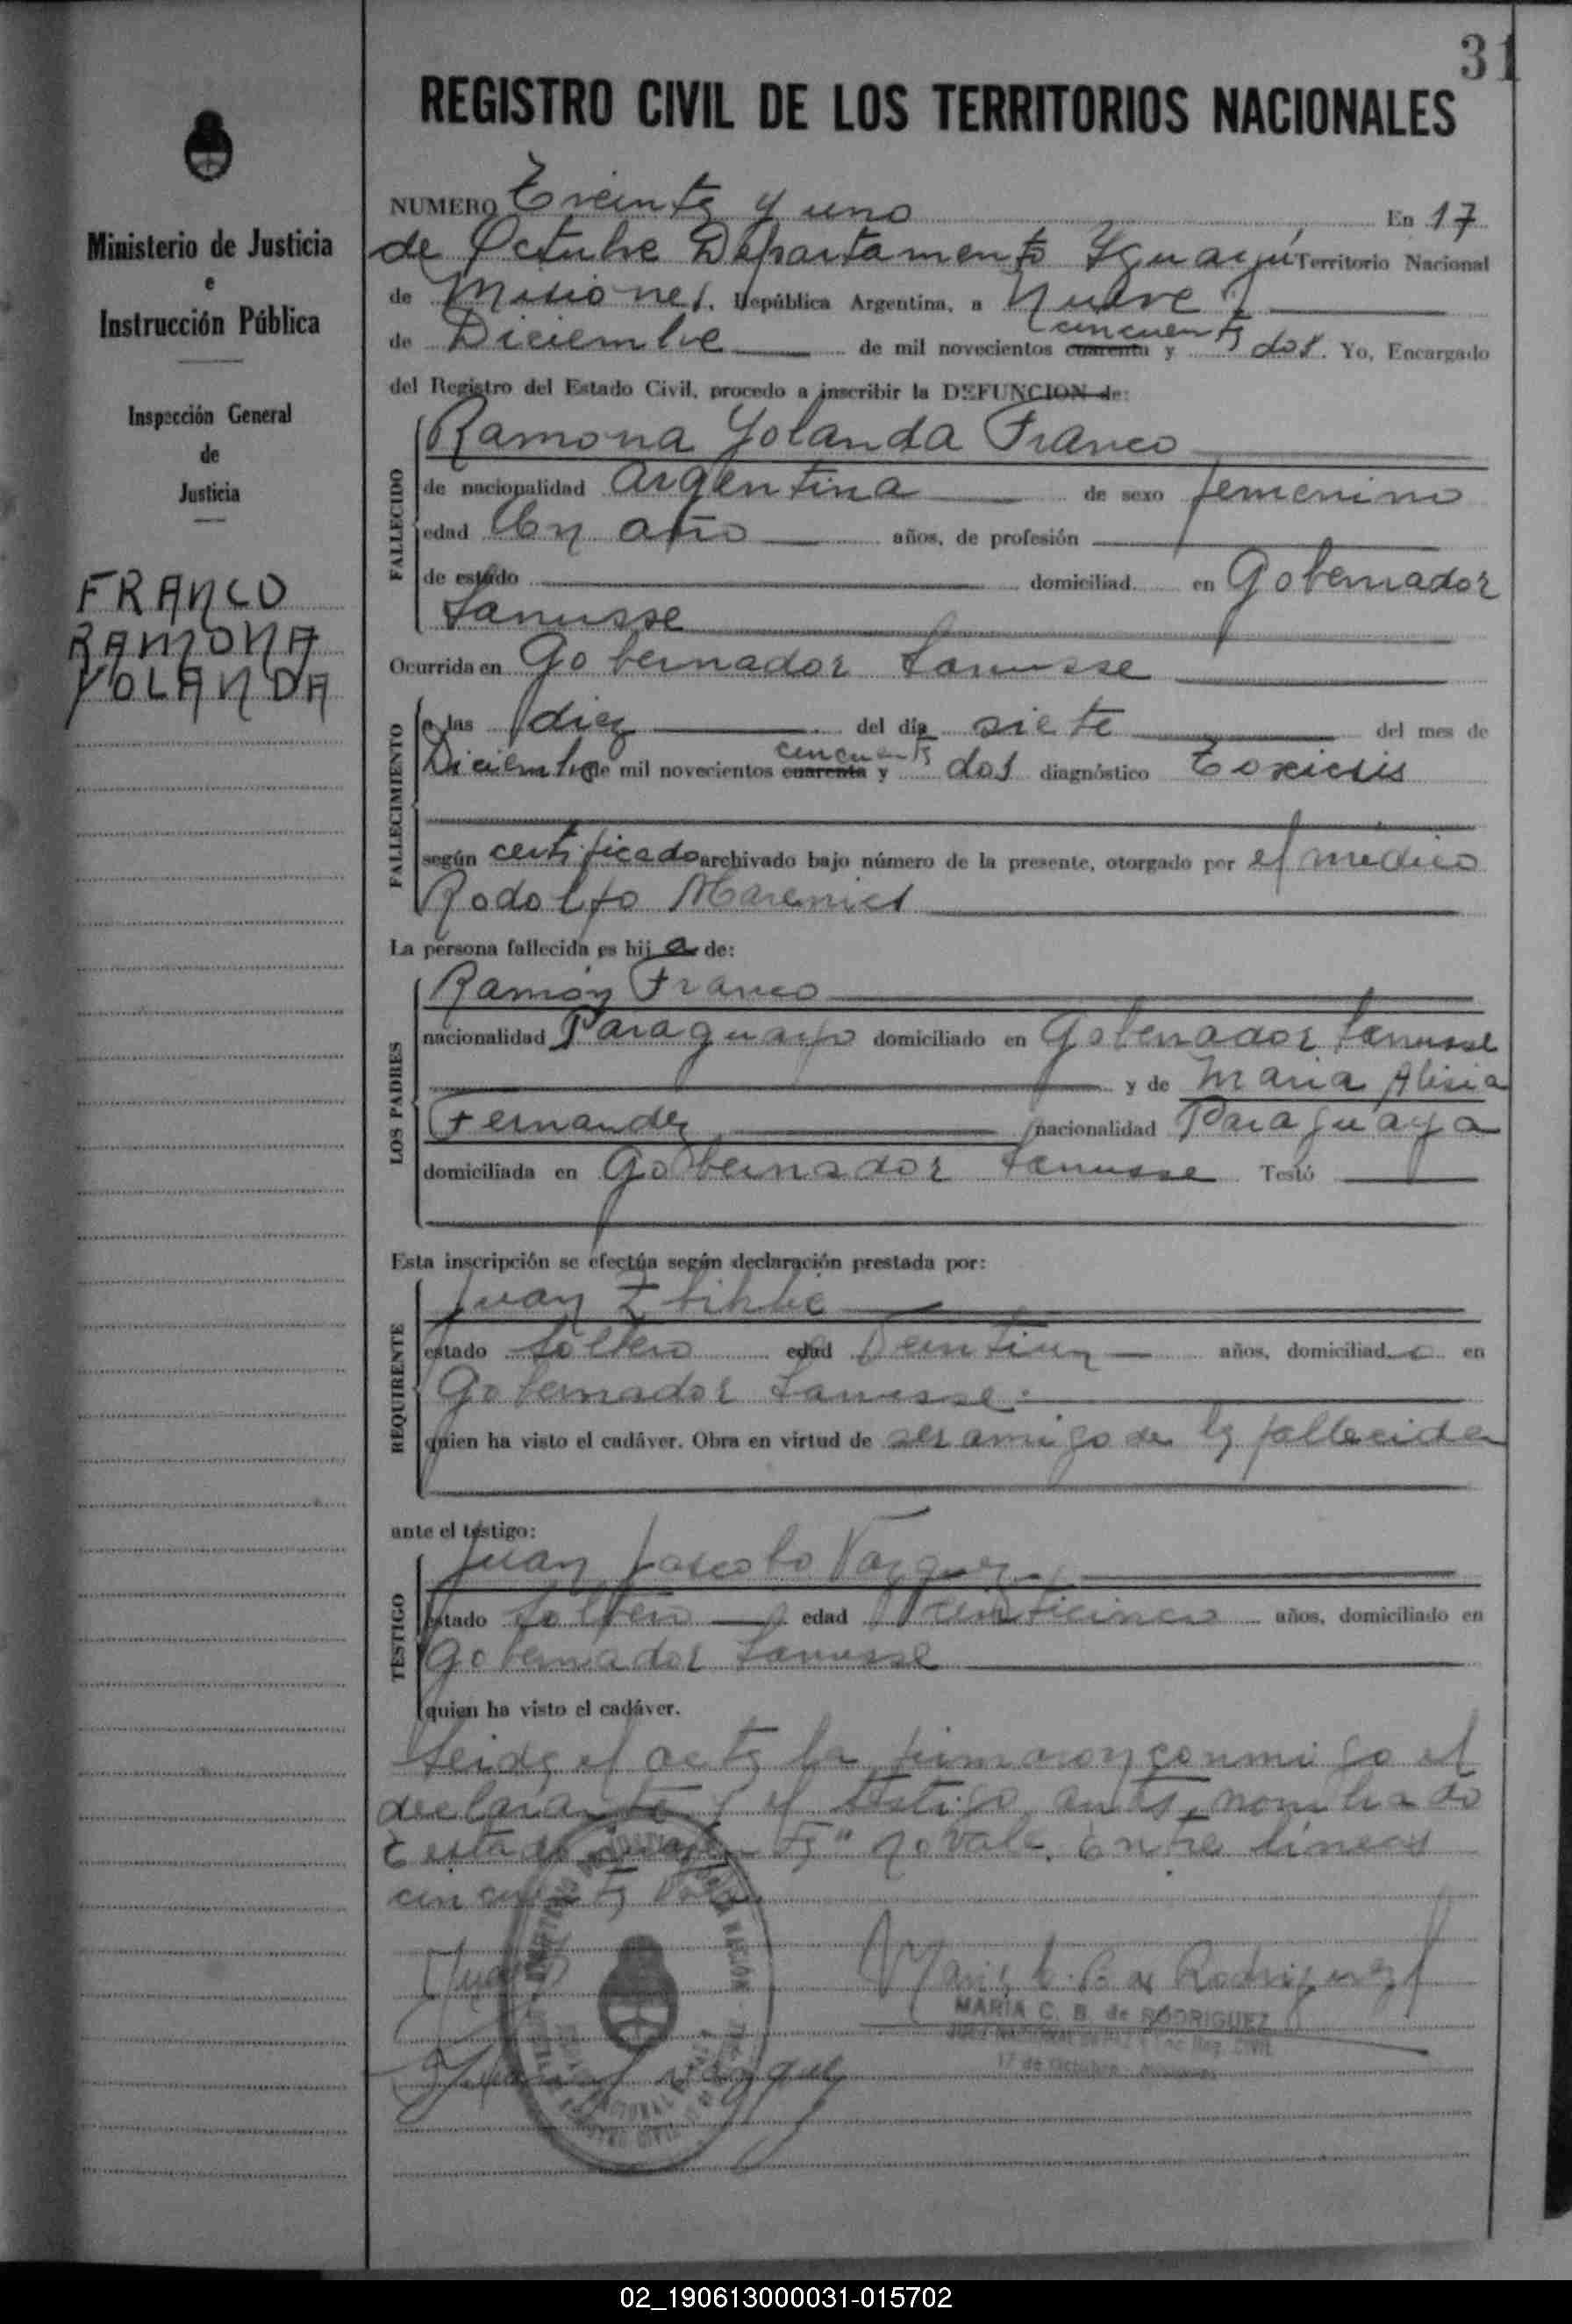 31
REGISTRO CIVIL DE LOS TERRITORIOS NACIONALES
Ministerio de Justicia
e
Instrucción Pública
Inspección General
de
Justicia
FRANCO
RAMONA
YOLANDA
NUMERO Treinta y uno En 17
de Octubre Departamento Iguazú Territorio Nacional
de Misiones. República Argentina, a Nueve
de Diciembre de mil novecientos cuarenta cincuenta y dos. Yo, Encargado
del Registro del Estado Civil, procedo a inscribir la DEFUNCION de:
FALLECIDO
Ramona Yolanda Franco
de nacionalidad Argentina de sexo femenino
edad Un año años, de profesión
de estado domiciliad en Gobernador
Lanusse
Ocurrida en Gobernador Lanusse
FALLECIMIENTO
a las diez del día siete del mes de
Diciembre de mil novecientos cuarenta cincuenta y dos diagnóstico Toxicisis
según certificado archivado bajo número de la presente, otorgado por el medico
Rodolfo
La persona fallecida es hija de:
LOS PADRES
Ramón Franco
nacionalidad Paraguayo domiciliado en Gobernador Lanusse
y de Maria Alisia
Fernandez nacionalidad Paraguaya
domiciliada en Gobernador Lanusse Testó
Esta inscripción se efectúa según declaración prestada por:
REQUIRENTE
Juan
estado Soltero edad Veintiun años, domiciliado en
Gobernador Lanusse.
quien ha visto el cadáver. Obra en virtud de ser amigo de la fallecida
ante el testigo:
TESTIGO
Juan Vazquez
estado Soltero edad Veinticinco años, domiciliado en
Gobernador Lanusse
quien ha visto el cadáver.
Leida el acta la firmaron conmigo el
declarante y el testigo antes nombrado
Testado no vale. Entre lineas
cincuenta Vale
Juan
Maria C. B. de Rodriguez
MARIA C. B. de RODRIGUEZ
17 de Octubre - Misiones
Juan Vazquez
02_190613000031-015702